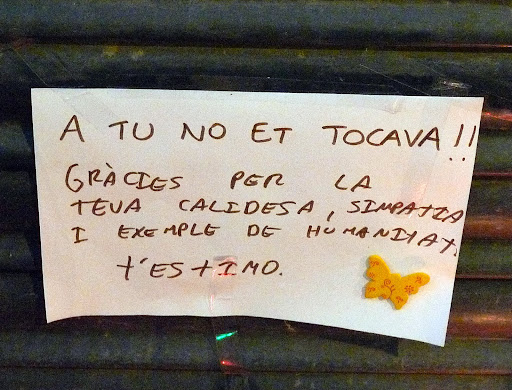 A TU NO ET TOCAVA!!
GRÀCIES PER LA
TEVA CALIDESA, SIMPATIA
I EXEMPLE DE HUMANITAT.
T'ESTIMO.